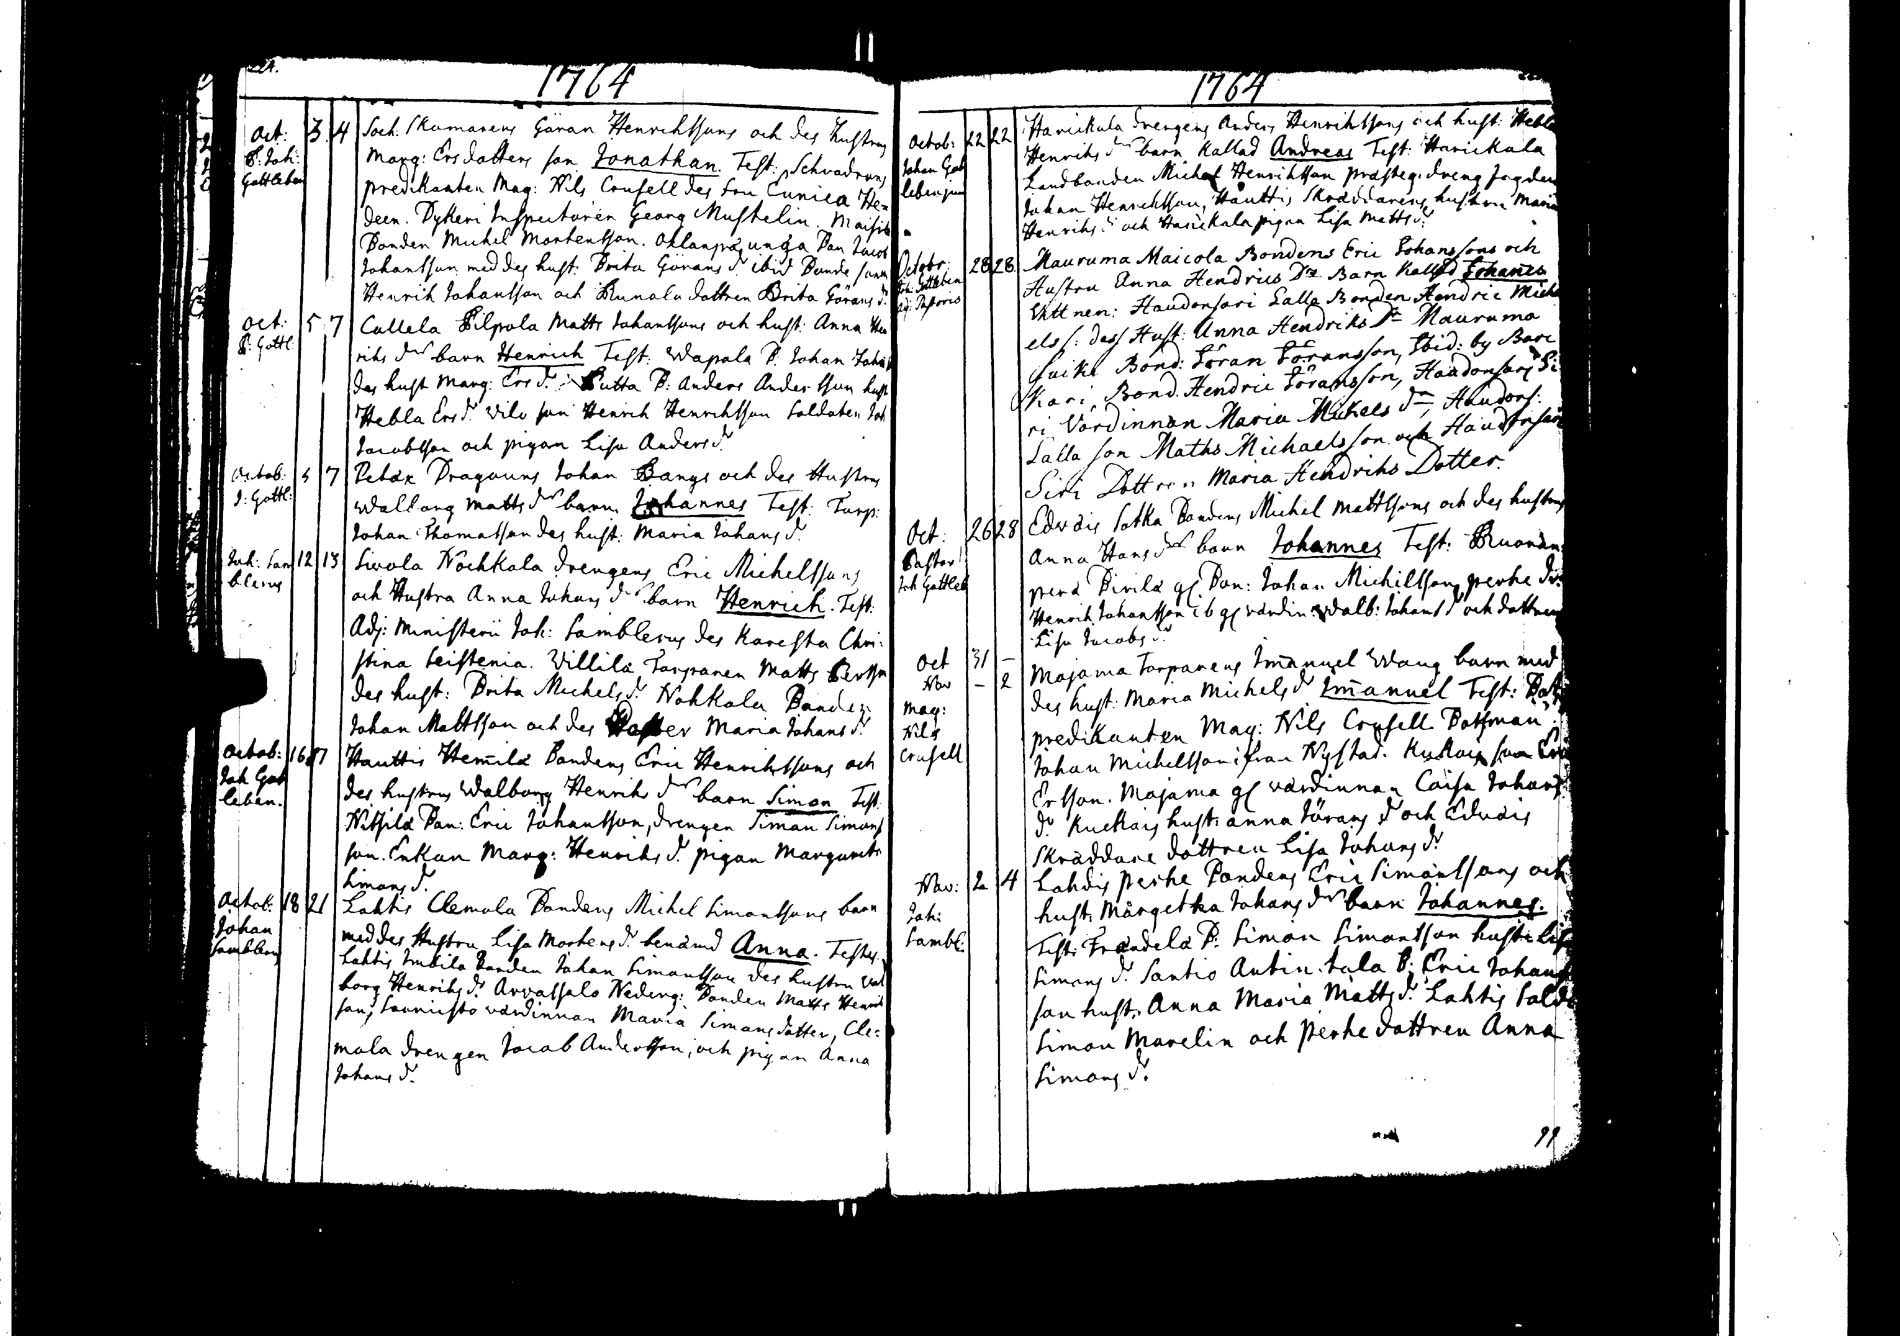 1764
Oct: 3 4 Soch. Skomarens Göran Henrichssons och des hustrus
P: Joh: Marg: Ersdotters son Jonathan. Test: Schvadrons
Gottleben predikanten Mag: Nils Crusell des fru Eunica He-
deen. Dykeri Inspectoren Georg Mustelin.
Bonden Michel Mortensson. Bon: Jacob
Johansson med des hust: Brita Görans dr ibid Bonde sonen
Henrich Johansson och Runala dottren Brita Görans dr
Oct: 5 7 Cullela Pilpola Matts Johanssons och hust: Anna Hen
P: Gottl: riks drs barn Henrich Test: Wapala B: Johan
des hust Marg: Ers dr Putta B: Anders Andersson hust
Hebla Ers dr vilu son Henrich Henrichsson Soldaten Joh
Jacobsson och pigan Lisa Anders dr
Octob: 5 7 Dragouns Johan Bangs och des Hustrus
J: Gottl: Walborg Matts drs barn Johannes Test: Torp:
Johan Thomasson des hust: Maria Johans dr
Joh: Sam 12 13 Sivola Nochkala drengens Eric Michelssons
blerus och Hustru Anna Johans drs barn Henrich. Test:
Adj: Ministerii Joh: Samblerus des Käresta Chri-
stina Leistenia. Villila Torparen Matts Bertson
des hust: Brita Michels dr Nohkala Bonden
Johan Mattsson och des Maria Johans dr
Octob: 16 17 Hauttis Hemilä Bondens Eric Henrichssons och
Joh Gott des hustrus Walborg Henriks drs barn Simon Test:
leben. Nissilä Bon: Eric Johansson, drengen Simon Simons
son. Enkan Marg: Henriks dr pigan Margareta
Simons dr
Octob: 18 21 Lahtis Clemola Bondens Michel Simonssons barn
Johan med des Hustru Lisa Mortens dr benämd Anna. Testes.
Samblerus Lahtis Bonden Johan Simonsson des hustru Wal
borg Henriks dr Arvassalo Nederg: Bonden Matts Henrik
son, värdinnan Maria Simons dotter, Cle-
mola drengen Jacob Andersson, och pigan Anna
Johans dr
1764
Octob: 22 22 Hanickala drengens Anders Henrichssons och hust: Hebla
Johan Gott Henriks drs barn kallad Andreas Test: Hanickala
leben jun Landbonden Michel Henrichsson prästeg: dreng
Johan Henrichsson, Hauttis Skräddarens hustru Maria
Henriks dr och Hanickala pigan Lisa Matts dr
Octobr: 28 28 Mauruma Maicola Bondens Eric Johanssons och
Joh: Gottleben Hustru Anna Hendrics Drs Barn kallad Johannes
adj: Pastoris Vittnen: Haudonsari Lalla Bonden Hendric Micha
els s: dess Hust: Anna Hendriks Dr Mauruma
Suiki Bond: Göran Göransson, Ibid: by Bare
Kari, Bond. Hendric Göransson, Haudonsari Si-
ri Värdinnan Maria Mickels dr, Haudons:
Lalla son Maths Michaelsson och Haudonsari
Siri Dottren Maria Hendriks Dotter.
Oct: 26 28 Edväis Sotka Bondens Michel Mattssons och des hustrus
Pastor Anna Hans drs barn Johannes Test:
Joh Gottleb Pirilä gl Bon: Johan Michelsson, perhe dr:
Henrich Johansson ib gl värdin: Walb: Johans dr och dottren
Lisa Jacobs dr
Oct 31 – Majama Torparens Imanuel Wang barn med
Nov – 2 des hust: Maria Michels dr Imanuel Test: Bat:
Mag: predikanten Mag: Nils Crusell Botsman
Nils Johan Michelsson ifrån Nystad. Kuckais son Eric
Crusell Ersson. Majama gl värdinnan Caisa Johans
dr Kuckais hust: Anna Görans dr och Edväis
Skräddare dottren Lisa Johans dr
Nov: 2 4 Lahdis perhe Bondens Eric Simonssons och
Joh: hust: Märgetha Johans drs barn Johannes.
Sambl: Test: Frändelä B: Simon Simonsson hust: Lisa
Simons dr Santio Antin-tala B: Eric Johans
son hust: Anna Maria Matts dr Lahtis Sold:
Simon Marelin och perhe dottren Anna
Simons dr
99